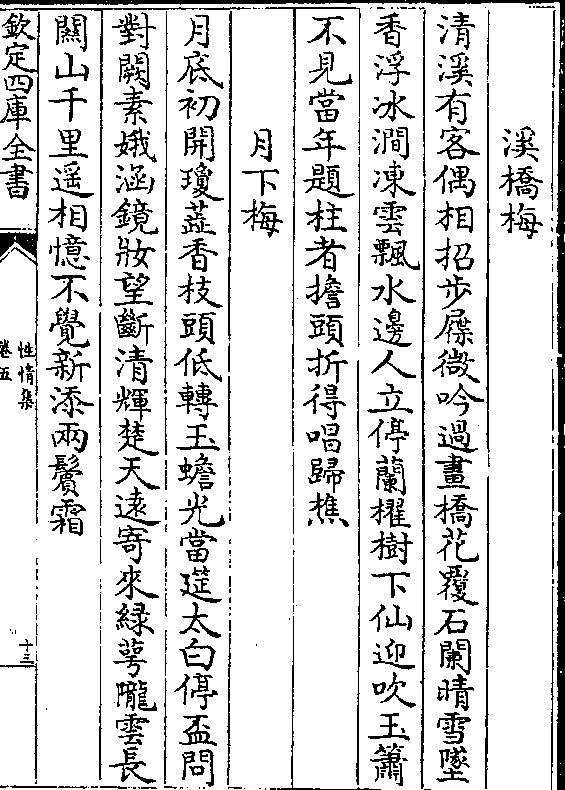 溪橋梅
清溪有客偶相招步屧微吟過畫橋花覆石闌晴雪墜
香浮冰澗凍雲飄水邊人立停蘭櫂樹下仙迎吹玉簫
不見當年題柱者擔頭折得唱歸樵
月下梅
月底初開瓊蘂香枝頭低轉玉蟾光當筵太白停盃問
對闕素娥涵鏡妝望斷清輝楚天遠寄來緑萼隴雲長
關山千里遥相憶不覺新添兩鬢霜
欽定四庫全書
性情集
卷五
十三